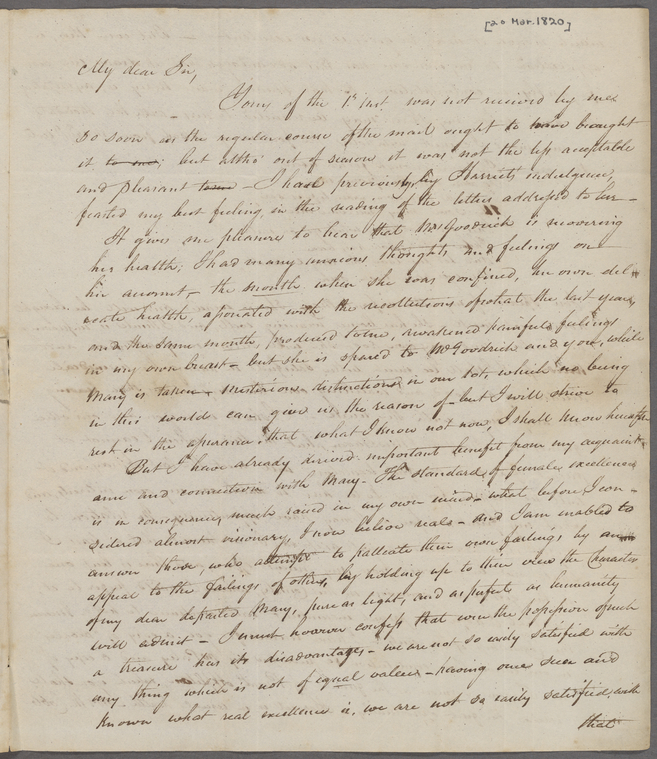 [20 Mar. 1820]
My dear Sir,
Yours of the 1st inst. was not received by me
so soon as the regular course of the mail ought to have brought
it to me; but altho' out of season it was not the less acceptable
and pleasant to me - I had previously, by Harriet's indulgence,
feasted my best feelings in the reading of the letters addressed to her -
It gives me pleasure to hear that Mrs Goodrich is recovering
her health; I had many anxious thoughts and feelings on
her account - the month when she was confined, her own deli
cate health, associated with the recollections of what the last year,
and the same month, produced to me, awakened painful feelings
in my own breast - but she is spared to Mr Goodrich and you, while
Mary is taken - Mysterious distinctions in our lot, which no being
in this world can give us the reason of - but I will strive to
rest in the assurance that what I know not now, I shall know hereafter
But I have already derived important benefit from my acquaint
ance and connection with Mary - The standard of female excellence
is in consequence, much raised in my own mind - what before I con-
sidered almost visionary, I now believe real - and I am enabled to
answer those, who attempt to palliate their own failings by an
appeal to the failings of others, by holding up to their view the character
of my dear departed Mary, pure as light, and as perfect as humanity
will admit - I must however confess that even the possession of such
a treasure has its disadvantages - we are not so easily satisfied with
any thing which is not of equal value - having once seen and
known what real excellence is, we are not so easily satisfied with
that